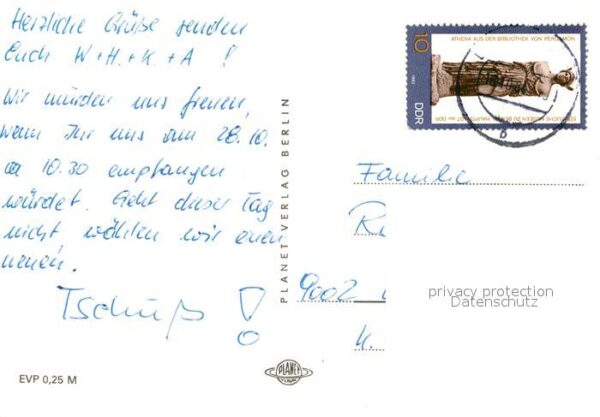 Herzliche Grüße senden
Euch W+H.+K+A !
Wir würden uns freuen,
wenn Ihr uns am 28.10.
ca 10.30 empfangen
würdet. Geht dieser Tag
nicht wählen wir einen
neuen.
Tschüß !
EVP 0,25 M
PLANET VERLAG BERLIN
PLANET
10
ATHENA AUS DER BIBLIOTHEK VON PERGAMON
STAATLICHE MUSEEN ZU BERLIN HAUPTSTADT der DDR
DDR
Familie
R
9002
K.
privacy protection
Datenschutz